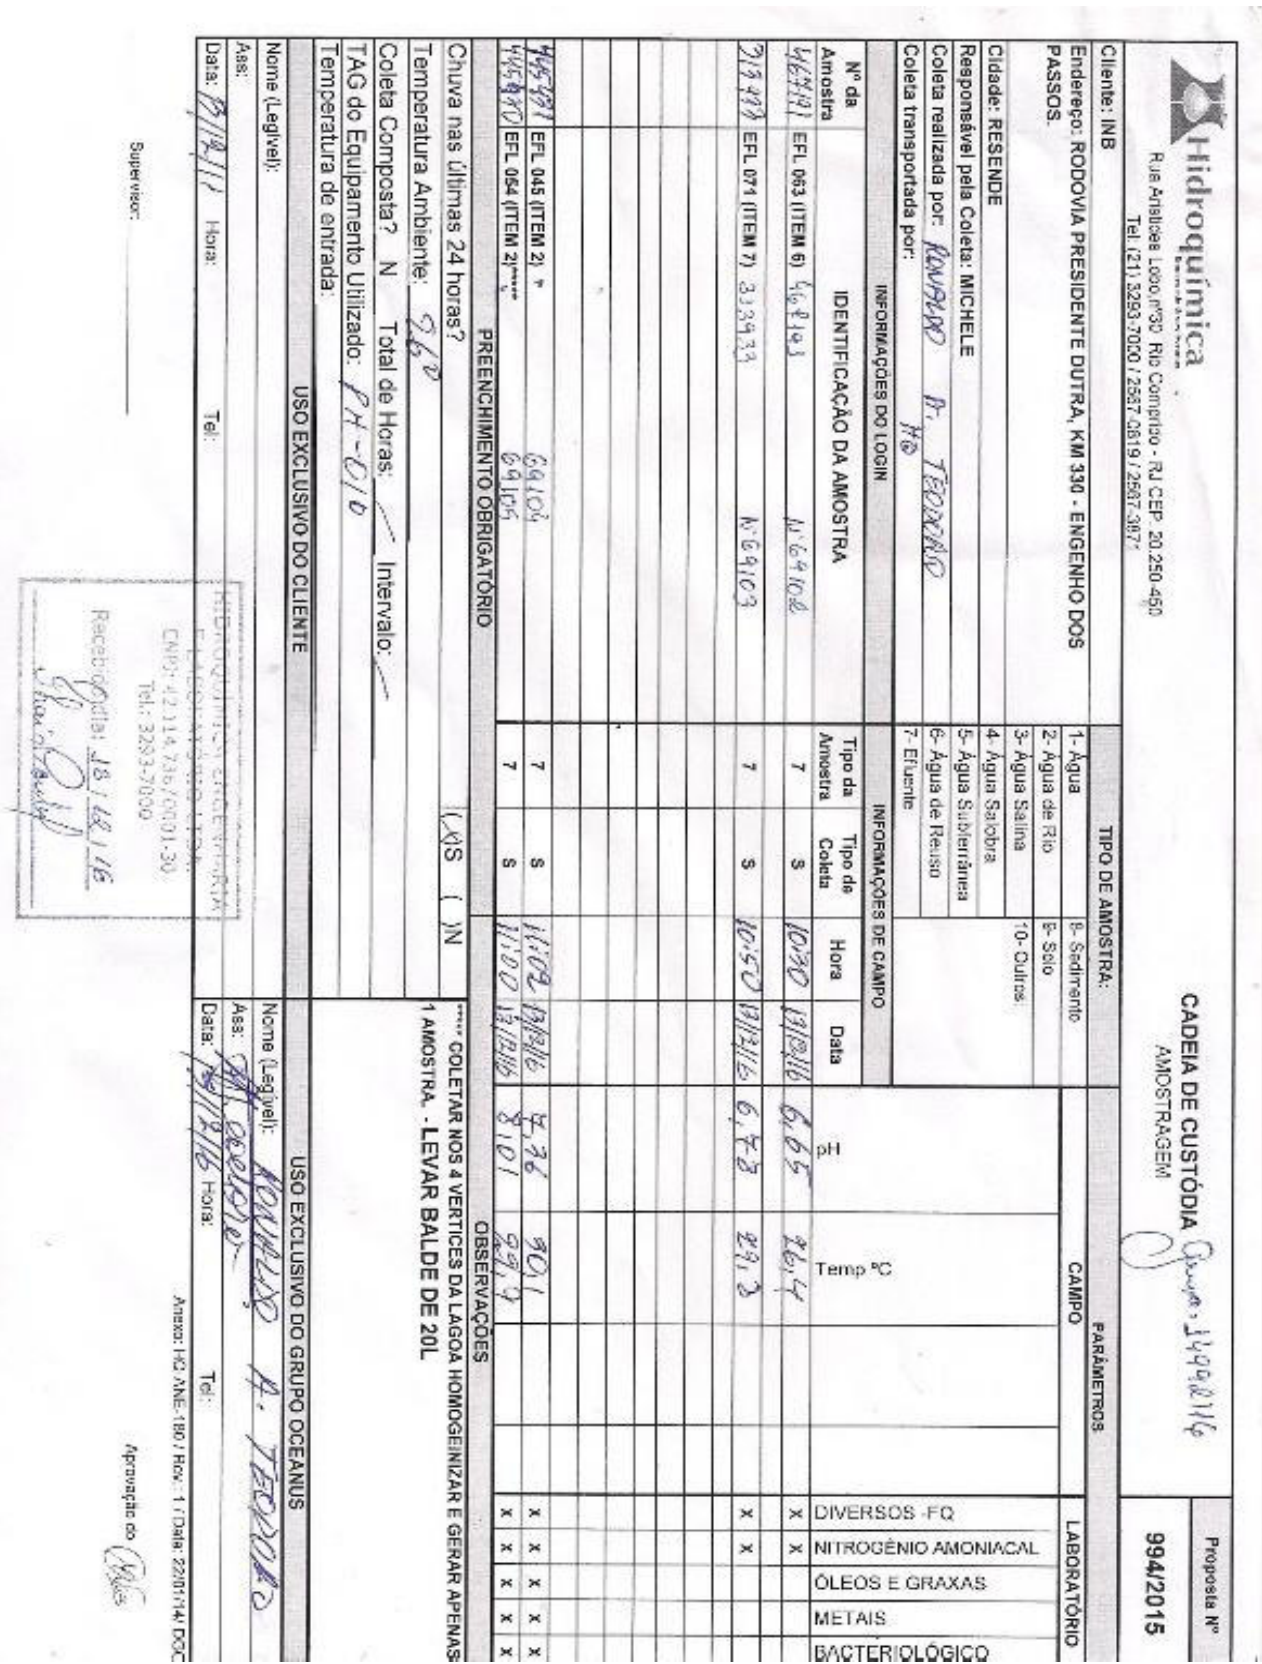 Hidroquímica
Rua Aristides Lobo,nº30 Rio Comprido - RJ CEP. 20.250-450
Tel: (21) 3293-7000 / 2567-0819 / 2567-3871
CADEIA DE CUSTÓDIA
AMOSTRAGEM
Proposta Nº
994/2015
Cliente: INB
Endereço: RODOVIA PRESIDENTE DUTRA, KM 330 - ENGENHO DOS
PASSOS.
Cidade: RESENDE
Responsável pela Coleta: MICHELE
Coleta realizada por: RONALDO A. TEODORO
Coleta transportada por: HO
TIPO DE AMOSTRA:
1- Água
2- Água de Rio
3- Água Salina
4- Água Salobra
5- Água Subterrânea
6- Água de Reuso
7- Efluente
8- Sedimento
9- Solo
10- Outros:
PARÂMETROS
CAMPO
LABORATÓRIO
INFORMAÇÕES DO LOGIN
INFORMAÇÕES DE CAMPO
Nº da Amostra
IDENTIFICAÇÃO DA AMOSTRA
Tipo da Amostra
Tipo de Coleta
Hora
Data
pH
Temp ºC
DIVERSOS -FQ
NITROGÊNIO AMONIACAL
ÓLEOS E GRAXAS
METAIS
BACTERIOLÓGICO
EFL 063 (ITEM 6) Nº 69102 7 S 10:30 13/12/16 6,65 26,4 X X
EFL 071 (ITEM 7) 333933 Nº 69103 7 S 10:50 13/12/16 6,73 29,3 X X
EFL 045 (ITEM 2) * 69104 7 S 11:02 13/12/16 7,36 30,1 X X X X X
EFL 054 (ITEM 2)***** 69105 7 S 11:00 13/12/16 8,01 29,9 X X X X X
PREENCHIMENTO OBRIGATÓRIO
OBSERVAÇÕES
Chuva nas últimas 24 horas? (X)S ( )N
Temperatura Ambiente:
Coleta Composta? N Total de Horas: Intervalo:
TAG do Equipamento Utilizado: PH-010
Temperatura de entrada:
***** COLETAR NOS 4 VERTICES DA LAGOA HOMOGEINIZAR E GERAR APENAS
1 AMOSTRA. - LEVAR BALDE DE 20L
USO EXCLUSIVO DO CLIENTE
USO EXCLUSIVO DO GRUPO OCEANUS
Nome (Legível):
Ass:
Data: 13/12/1 Hora: Tel:
Nome (Legível): RONALDO A. TEODORO
Ass:
Data: 13/12/16 Hora: Tel:
HIDROQUÍMICA ENGENHARIA
E LABORATÓRIO LTDA.
CNPJ: 42.114.736/0001-30
Tel.: 3293-7000
Recebido dia: 13/12/16
Supervisor:
Anexo: HC ANE-180 / Rev.: 1 / Data: 22/01/14/ DOC
Aprovação do